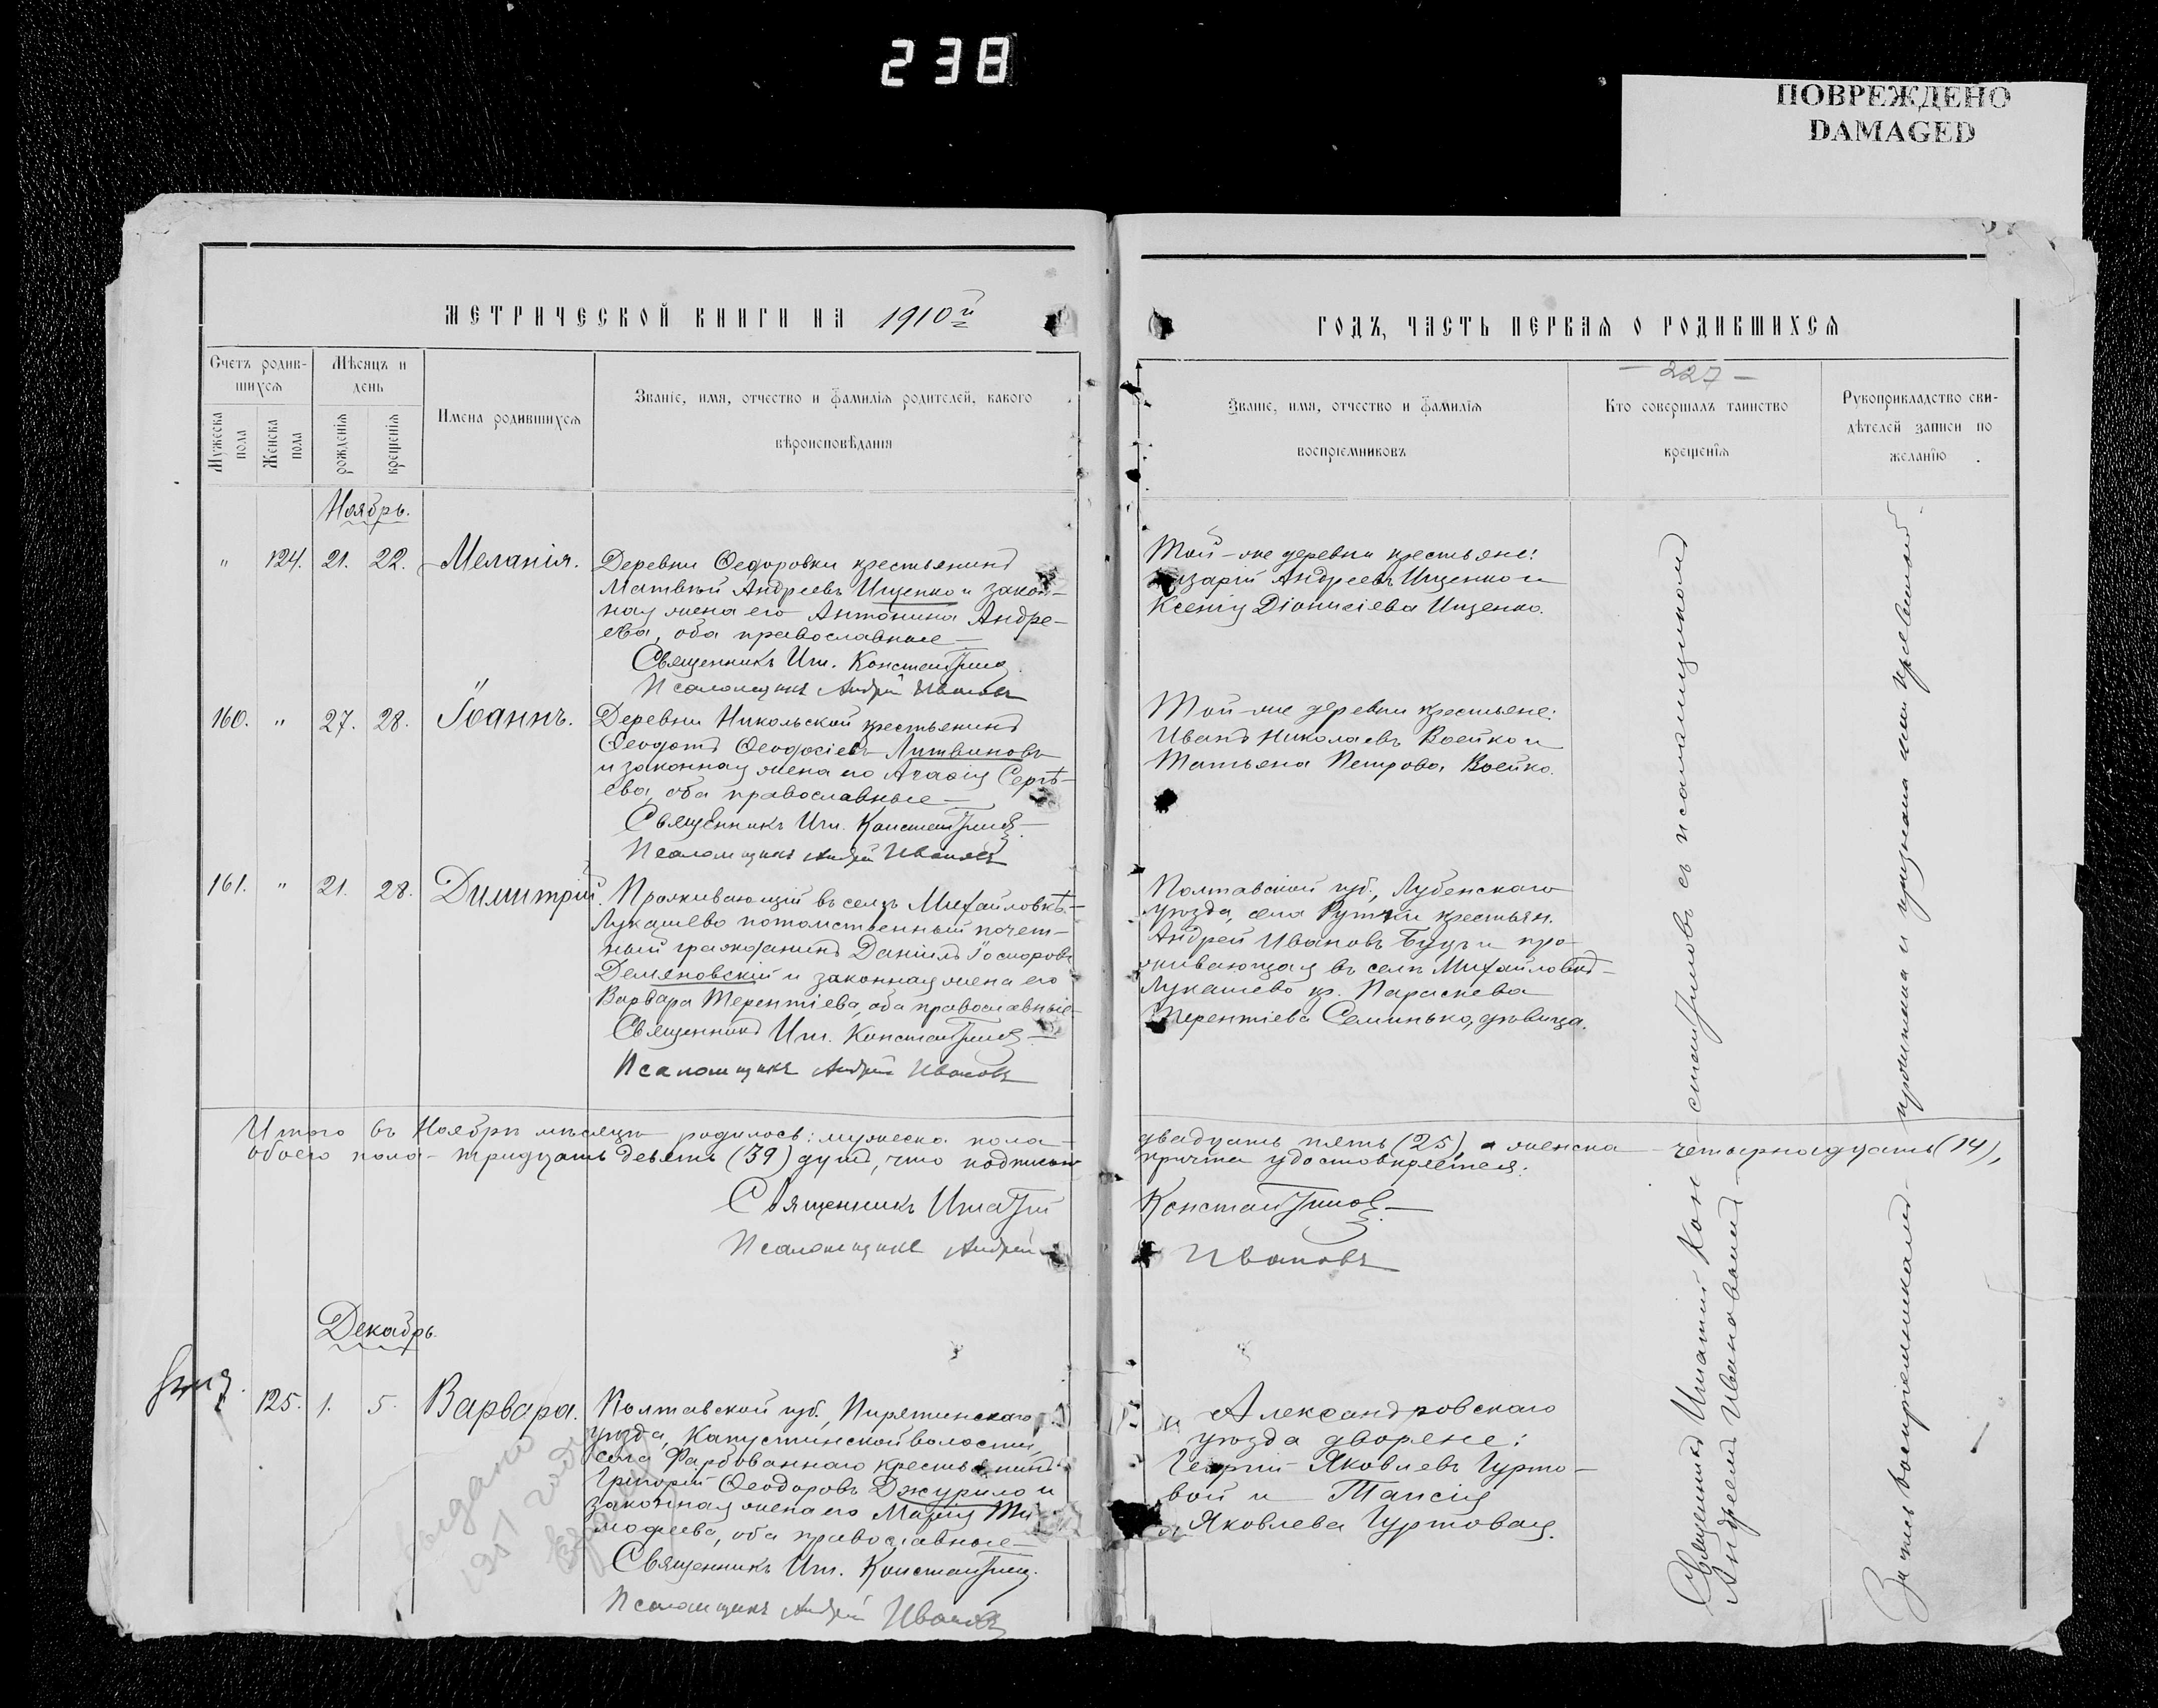 238
ПОВРЕЖДЕНО
DAMAGED
МЕТРИЧЕСКОЙ КНИГИ НА 1910й
Счетъ родив-
шихся
Мѣсяцъ и
день
Мужеска
пола
Женска
пола
рожденія
крещенія
Имена родившихся
Званіе, имя, отчество и фамилія родителей, какого
вѣроисповѣданія
Ноябрь.
" 124. 21. 22. Меланія.
Деревни Ѳедоровки крестьянинъ
Матвѣй Андреевъ Ищенко и закон-
ная жена его Антонина Андре-
ева, оба православные
Священникъ Иг. Константиновъ
Псаломщикъ Андрей Ивановъ
160. " 27. 28. Іоаннъ.
Деревни Никольской крестьянинъ
Ѳеодотъ Ѳеодосіевъ Литвиновъ
и законная жена его Агафія Сергѣ-
ева, оба православные
Священникъ Иг. Константиновъ
Псаломщикъ Андрей Ивановъ
161. " 21. 28. Димитрій.
Проживающій въ селѣ Михайловкѣ-
Лукашево потомственный почет-
ный гражданинъ Даніилъ Іосифовъ
Демяновскій и законная жена его
Варвара Терентіева, оба православные
Священникъ Иг. Константиновъ
Псаломщикъ Андрей Ивановъ
Итого въ Ноябрѣ мѣсяцѣ родилось: мужеска пола
обоего пола - тридцать девять (39) душъ, что подписью
Священникъ Игнатій
Псаломщикъ Андрей
Декабрь.
125. 1. 5. Варвара.
Полтавской губ., Пирятинскаго
уѣзда, Капустинской волости,
села Фарбованнаго крестьянинъ
Григорій Ѳеодоровъ Джурило и
законная жена его Марія Ти-
моѳеева, оба православные
Священникъ Иг. Константиновъ
Псаломщикъ Андрей Ивановъ
Выдано
1951 года
ГОДЪ, ЧАСТЬ ПЕРВАЯ О РОДИВШИХСЯ
- 227 -
Званіе, имя, отчество и фамилія
воспріемниковъ
Кто совершалъ таинство
крещенія
Рукоприкладство сви-
дѣтелей записи по
желанію
Той-же деревни крестьяне:
Андреевъ Ищенко и
Ксенія Діонисіева Ищенко.
Той-же деревни крестьяне:
Иванъ Николаевъ Воейко и
Татьяна Петрова Воейко.
Полтавской губ., Лубенскаго
уѣзда, села крестьян.
Андрей Ивановъ Буцъ и про-
живающая въ селѣ Михайловкѣ-
Лукашево кр. Параскева
Терентіева Семинько, дѣвица.
двадцать пять (25), а женска - четырнадцать (14),
причта удостовѣряется:
Константиновъ
Ивановъ
Александровскаго
уѣзда дворяне:
Георгій Яковлевъ Гурто-
вой и Таисія
Яковлева Гуртовая.
Священникъ Игнатій Константиновъ съ псаломщикомъ
Андреемъ Ивановымъ
Запись воспріемниками прочитана и признана